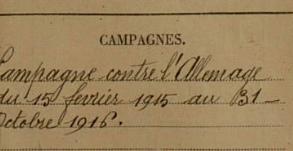 CAMPAGNES.
Campagne contre l'Allemage
du 15 fevrier 1915 au 31 -
Octobre 1916.